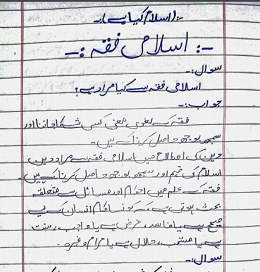 -:(اسلام کیا ہے):-
-: اسلامی فقہ :-
سوال:-
اسلامی فقہ سے کیا مراد ہے؟
جواب:-
فقہ کے لغوی معنی کسی شے کا جاننا اور
سمجھ بوجھ حاصل کرنا کے ہیں۔
دین کی اصطلاح میں اسلامی فقہ سے مراد دین
اسلام کی فہم اور سمجھ بوجھ حاصل کرنا کے ہیں
فقہ کے علم میں احکام اور مسائل سے متعلق
بحث ہوتی ہے کہ کونسا کام انسان کے لیے
صحیح ہے یا فاسد، فرض ہے یا واجب، سنت
ہے یا مستحب، حلال ہے یا حرام وغیرہ۔
سوال:-